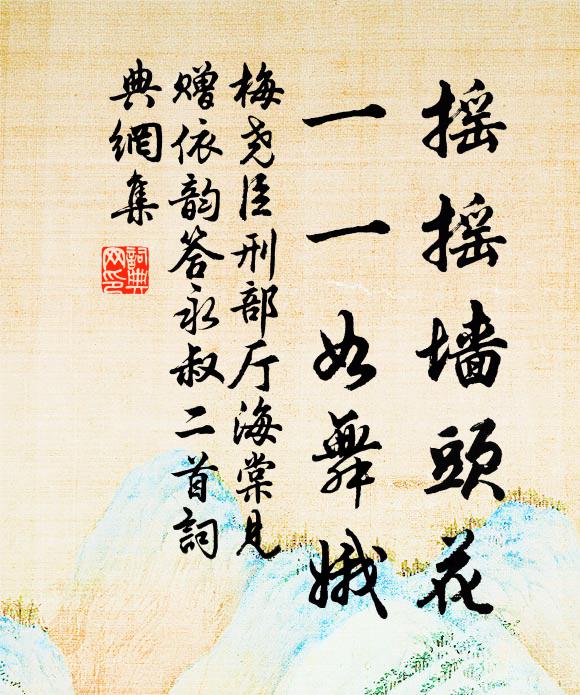 摇摇墙頭花
一一如舞娥
梅尧臣刑部厅海棠見
赠依韵答永叔二首詞
典網集
詞典网印